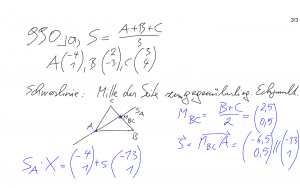 3/3
990a, S = (A+B+C)/3
A(-4 1), B(2 -3), C(3 4)
Schwerlinie: Mitte der Seite zum gegenüberlieg. Eckpunkt
C S_A
M_BC
A B
M_BC = (B+C)/2 = (2,5 0,5)
s⃗ = M_BC A⃗ = (-6,5 0,5) || (-13 1)
S_A: X = (-4 1) + s (-13 1)